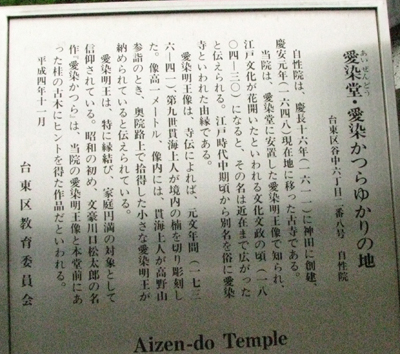 あいぜんどう
愛染堂・愛染かつらゆかりの地
台東区谷中六丁目二番八号 自性院
自性院は、慶長十六年(一六一一)に神田に創建、
慶安元年(一六四八)現在地に移った古寺である。
当院は、愛染堂に安置した愛染明王像で知られ、
江戸文化が花開いたといわれる文化文政の頃(一八
〇四―三〇)になると、その名は近在まで広がった
と伝えられる。江戸時代中期頃から別名を俗に愛染
寺といわれた由縁である。
愛染明王像は、寺伝によれば、元文年間(一七三
六―四一)、第九世貫海上人が境内の楠を切り彫刻し
た。像高一メートル。像内には、貫海上人が高野山
参詣のとき、奥院路上で拾得した小さな愛染明王が
納められていると伝えられている。
愛染明王は、特に縁結び、家庭円満の対象として
信仰されている。昭和の初め、文豪川口松太郎の名
作「愛染かつら」は、当院の愛染明王像と本堂前にあ
った桂の古木にヒントを得た作品だといわれる。
平成四年十一月
台東区教育委員会
Aizen-do Temple